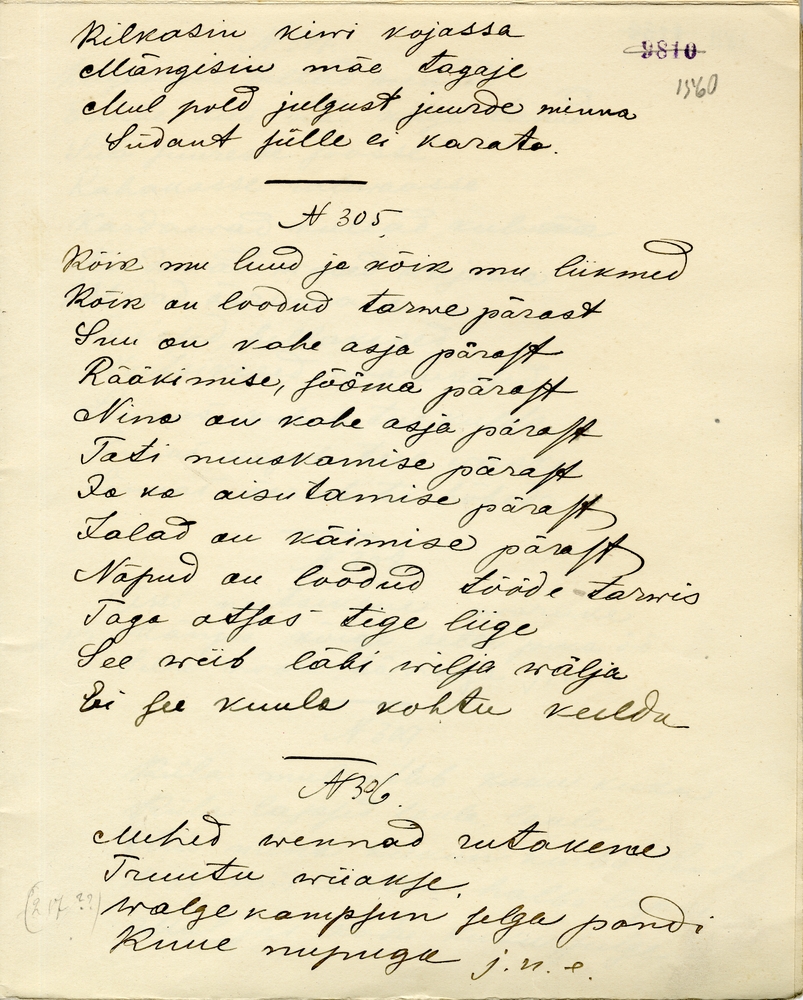 Kilkasin kiwi kojassa
9810
Mängisin mäe tagaje
1560
Mul pold julgust juurde minna
Südant sülle ei karata.
N 305
Kõik mu luud ja kõik mu liikmed
Kõik on loodud tarwe pärast
Suu on kahe asja pärast
Rääkimise, sööma pärast
Nina on kahe asja pärast
Tati nuuskamise pärast
Ja ka aisutamise pärast
Jalad on käimise pärast
Näpud on loodud tööde tarwis
Taga otsas tige liige
See wiib läbi wilja wälja
Ei see kuula kohtu keeldu
N 306.
Mehed wennad rutakene
Truutu wiiakse
(217??) walge kampsun selga pandi
Kuue nupuga j.n.e.